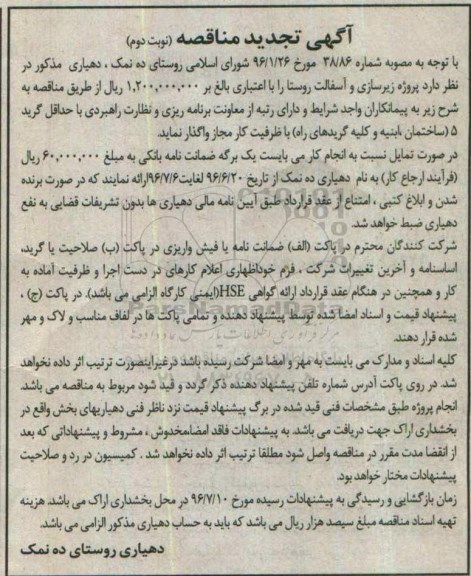 آگهی تجدید مناقصه (نوبت دوم)
با توجه به مصوبه شماره ۳۸/۸۶ مورخ ۹۶/۱/۲۶ شورای اسلامی روستای ده نمک ، دهیاری مذکور در
نظر دارد پروژه زیرسازی و آسفالت روستا را با اعتباری بالغ بر ۱,۲۰۰,۰۰۰,۰۰۰ ریال از طریق مناقصه به
شرح زیر به پیمانکاران واجد شرایط و دارای رتبه از معاونت برنامه ریزی و نظارت راهبردی با حداقل گرید
۵ (ساختمان ،ابنیه و کلیه گریدهای راه) با ظرفیت کار مجاز واگذار نماید.
در صورت تمایل نسبت به انجام کار می بایست یک برگه ضمانت نامه بانکی به مبلغ ۶۰,۰۰۰,۰۰۰ ریال
(فرآیند ارجاع کار) به نام دهیاری ده نمک از تاریخ ۹۶/۶/۲۰ لغایت۹۶/۷/۶ارائه نمایند که در صورت برنده
شدن و ابلاغ کتبی ، امتناع از عقد قرارداد طبق آیین نامه مالی دهیاری ها بدون تشریفات قضایی به نفع
دهیاری ضبط خواهد شد.
شرکت کنندگان محترم در پاکت (الف) ضمانت نامه یا فیش واریزی در پاکت (ب) صلاحیت یا گرید،
اساسنامه و آخرین تغییرات شرکت ، فرم خوداظهاری اعلام کارهای در دست اجرا و ظرفیت آماده به
کار و همچنین در هنگام عقد قرارداد ارائه گواهی HSE(ایمنی کارگاه الزامی می باشد). در پاکت (ج) ،
پیشنهاد قیمت و اسناد امضا شده توسط پیشنهاد دهنده و تمامی پاکت ها در لفاف مناسب و لاک و مهر
شده قرار دهند.
کلیه اسناد و مدارک می بایست به مهر و امضا شرکت رسیده باشد درغیراینصورت ترتیب اثر داده نخواهد
شد. در روی پاکت آدرس شماره تلفن پیشنهاد دهنده ذکر گردد و قید شود مربوط به مناقصه می باشد.
انجام پروژه طبق مشخصات فنی قید شده در برگ پیشنهاد قیمت نزد ناظر فنی دهیاریهای بخش واقع در
بخشداری اراک جهت دریافت می باشد. به پیشنهادات فاقد امضامخدوش ، مشروط و پیشنهاداتی که بعد
از انقضا مدت مقرر در مناقصه واصل شود مطلقا ترتیب اثر داده نخواهد شد . کمیسیون در رد و صلاحیت
پیشنهادات مختار خواهد بود.
زمان بازگشایی و رسیدگی به پیشنهادات رسیده مورخ ۹۶/۷/۱۰ در محل بخشداری اراک می باشد. هزینه
تهیه اسناد مناقصه مبلغ سیصد هزار ریال می باشد که باید به حساب دهیاری مذکور الزامی می باشد.
دهیاری روستای ده نمک